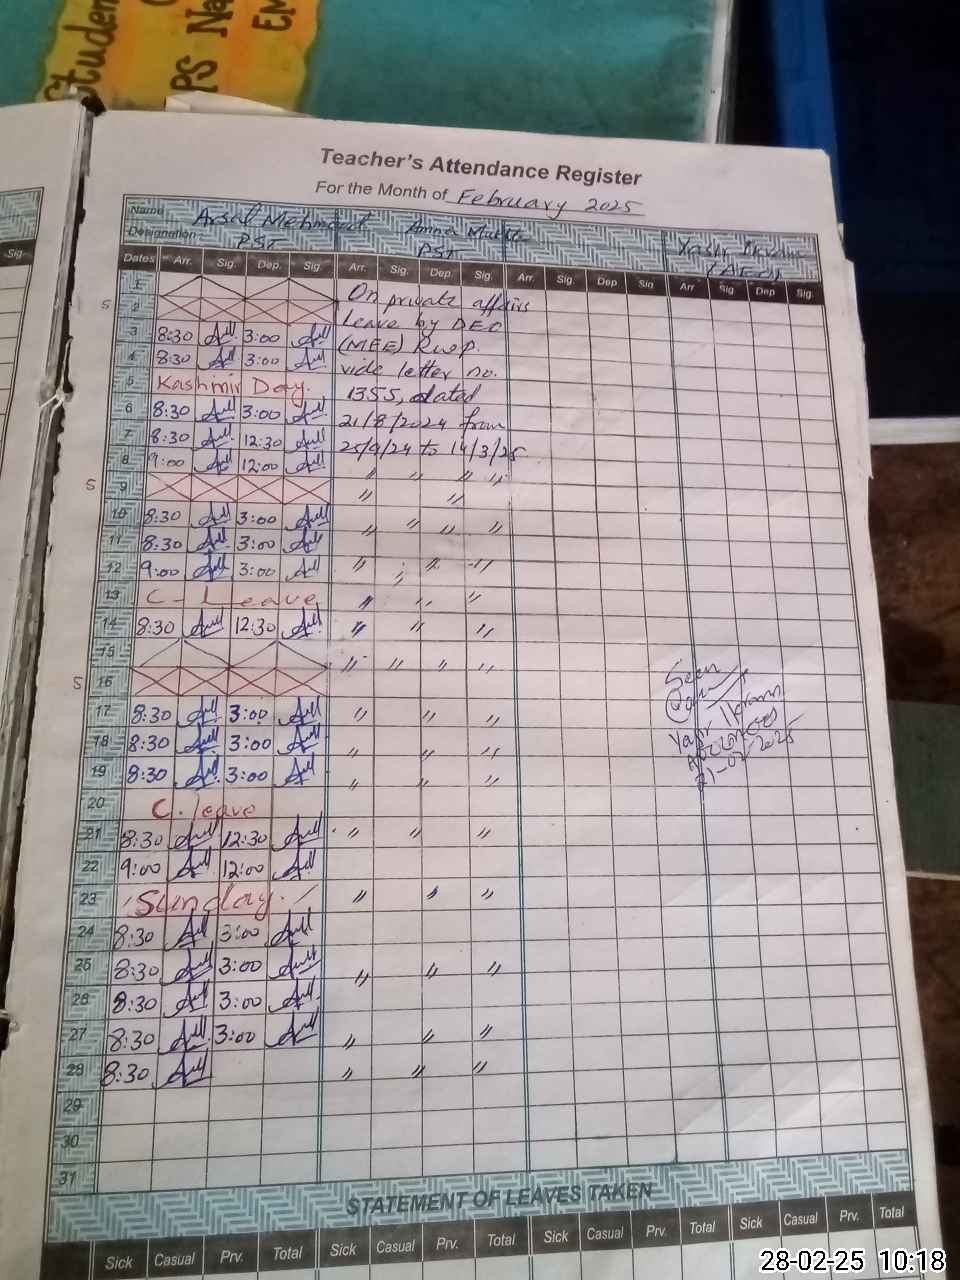 Student
PS Na
EM
Sig.
Teacher's Attendance Register
For the Month of February 2025
Name Arsal Mehmood Amna Yasir Ikram
Designation PST PST
Dates Arr. Sig. Dep. Sig. Arr. Sig. Dep. Sig. Arr. Sig. Dep. Sig. Arr Sig Dep Sig.
1 On private affairs
S 2 Leave by DEO
3 8:30 3:00 (MEE) Rwp.
4 8:30 3:00 vide letter no.
5 Kashmir Day. 1355, dated
6 8:30 3:00 21/8/2024 from
7 8:30 12:30 25/9/24 to 14/3/25
8 9:00 12:00 〃 〃 〃 〃
S 9 〃 〃
10 8:30 3:00 〃 〃 〃 〃
11 8:30 3:00
12 9:00 3:00 〃 〃 〃 〃
13 C- Leave 〃 〃 〃
14 8:30 12:30 〃 〃 〃
15 〃 〃 〃 〃
S 16
17 8:30 3:00 〃 〃 〃
18 8:30 3:00 〃 〃 〃
19 8:30 3:00 〃 〃 〃
20 C. leave
21 8:30 12:30 〃 〃 〃
22 9:00 12:00
23 Sunday. 〃 〃 〃
24 8:30 3:00
25 8:30 3:00 〃 〃 〃
26 8:30 3:00
27 8:30 3:00 〃 〃 〃
28 8:30 〃 〃 〃
29
30
31
Seen
Yasir Ikram
21-02-2025
STATEMENT OF LEAVES TAKEN
Sick Casual Prv. Total Sick Casual Prv. Total Sick Casual Prv. Total Sick Casual Prv. Total
28-02-25 10:18